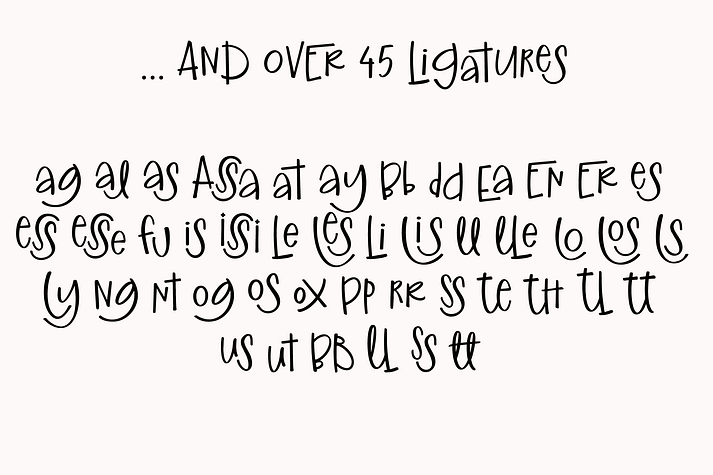 ... AND OVER 45 Ligatures
ag al as Assa at ay Bb dd Ea EN ER es
ess esse fj is issi Le Les Li Lis ll lle Lo Los Ls
Ly Ng Nt og os ox pp RR ss te tH tl tt
us ut BB ll ss tt